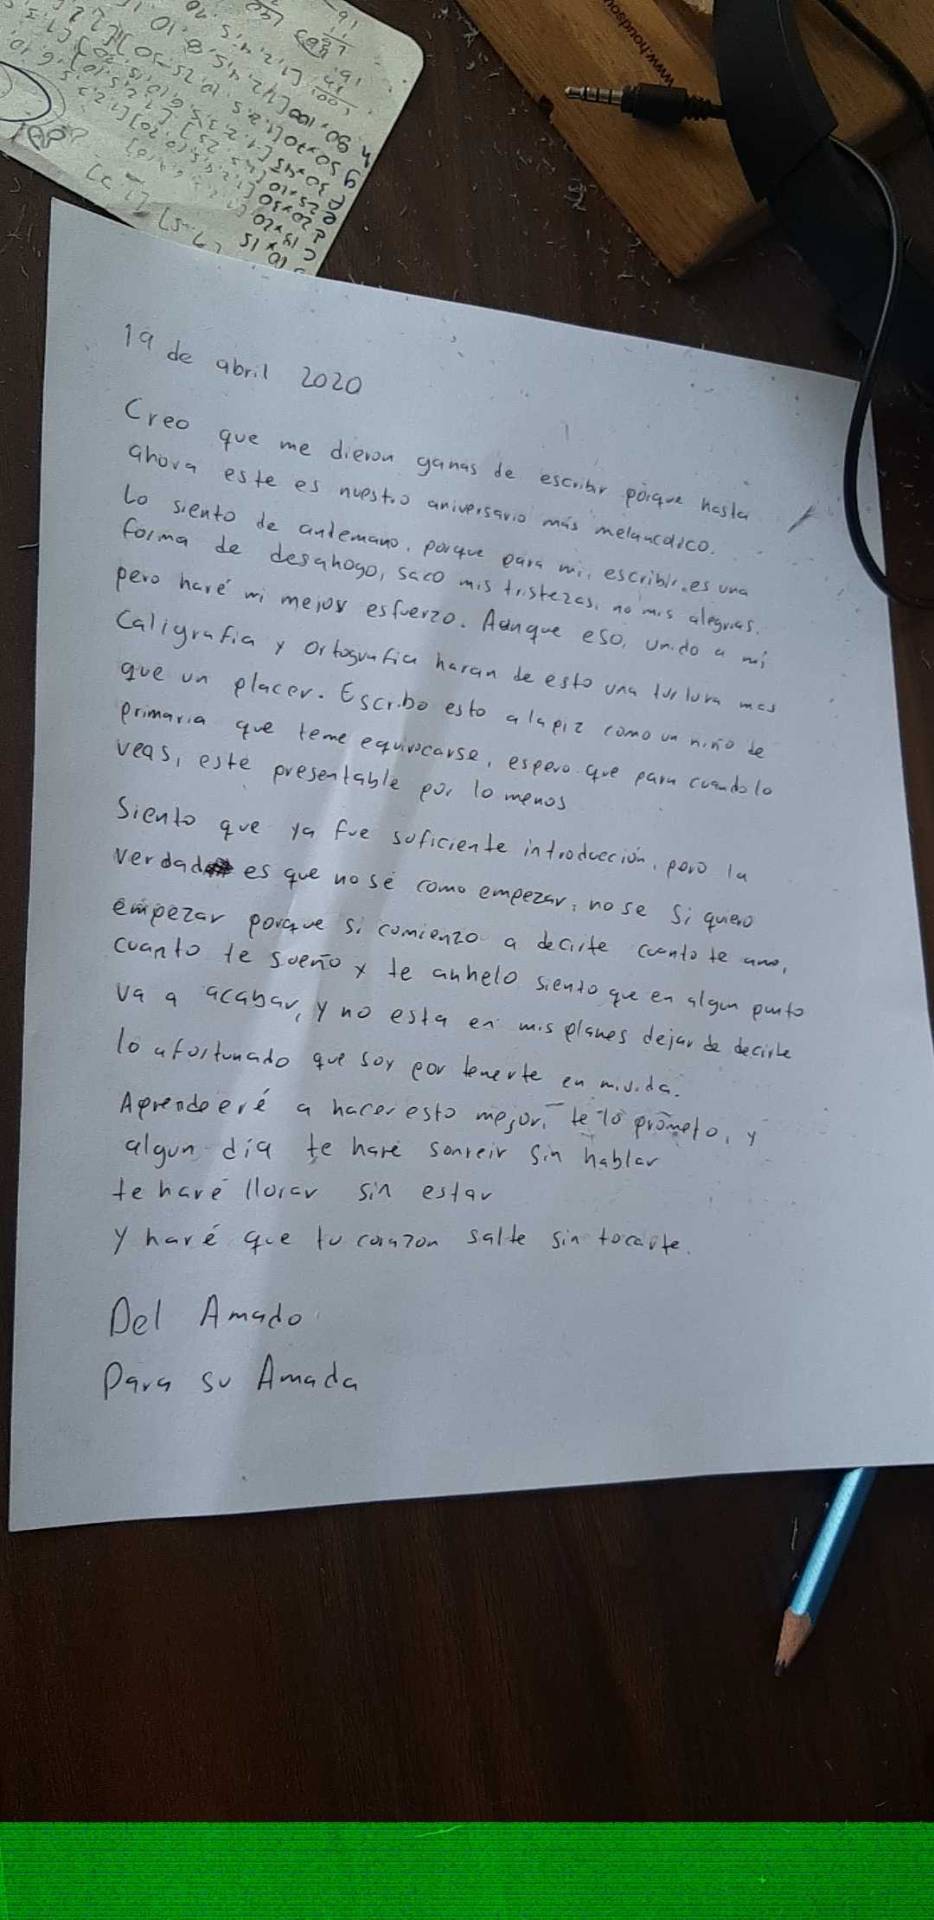 19 de abril 2020
Creo que me dieron ganas de escribir porque hasta
ahora este es nuestro aniversario más melancolico.
Lo siento de antemano, porque para mi, escribir, es una
forma de desahogo, saco mis tristezas, no mis alegrias.
pero haré mi mejor esfuerzo. Aunque eso, unido a mi
Caligrafia y ortografia haran de esto una tortura mas
que un placer. Escribo esto a lapiz como un niño de
primaria que teme equivocarse, espero que para cuando lo
veas, este presentable por lo menos
Siento que ya fue suficiente introducción, pero la
verdad es que no se como empezar, no se si quiero
empezar porque si comienzo a decirte cuanto te amo,
cuanto te sueño y te anhelo siento que en algun punto
va a acabar, y no esta en mis planes dejar de decirte
lo afortunado que soy por tenerte en mi vida.
Aprendeeré a hacer esto mejor, te lo prometo, y
algun dia te haré sonreir sin hablar
te haré llorar sin estar
y haré que tu corazon salte sin tocarte.
Del Amado
Para su Amada